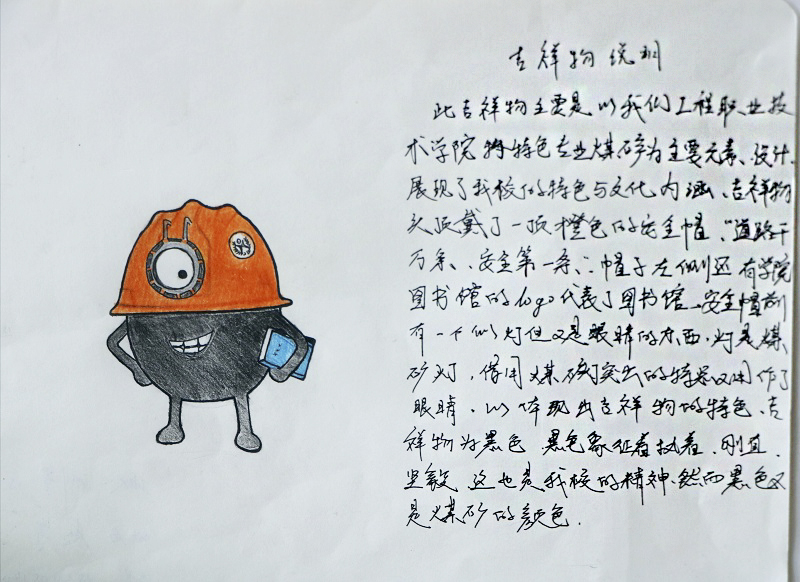 吉祥物说明
此吉祥物主要是以我们工程职业技
术学院特色专业煤矿为主要元素、设计、
展现了我校的特色与文化内涵、吉祥物
头顶戴了一顶橙色的安全帽、“道路千
万条、安全第一条、”帽子左侧还有学院
图书馆的logo代表了图书馆、安全帽前
有一个似灯但又是眼睛的东西、灯是煤
矿灯，借用煤矿灯突出的特容又用作了
眼睛、以体现出吉祥物的特色、吉
祥物为黑色 黑色象征着执着、刚直、
坚毅 这也是我校的精神、然而黑色又
是煤矿的颜色.